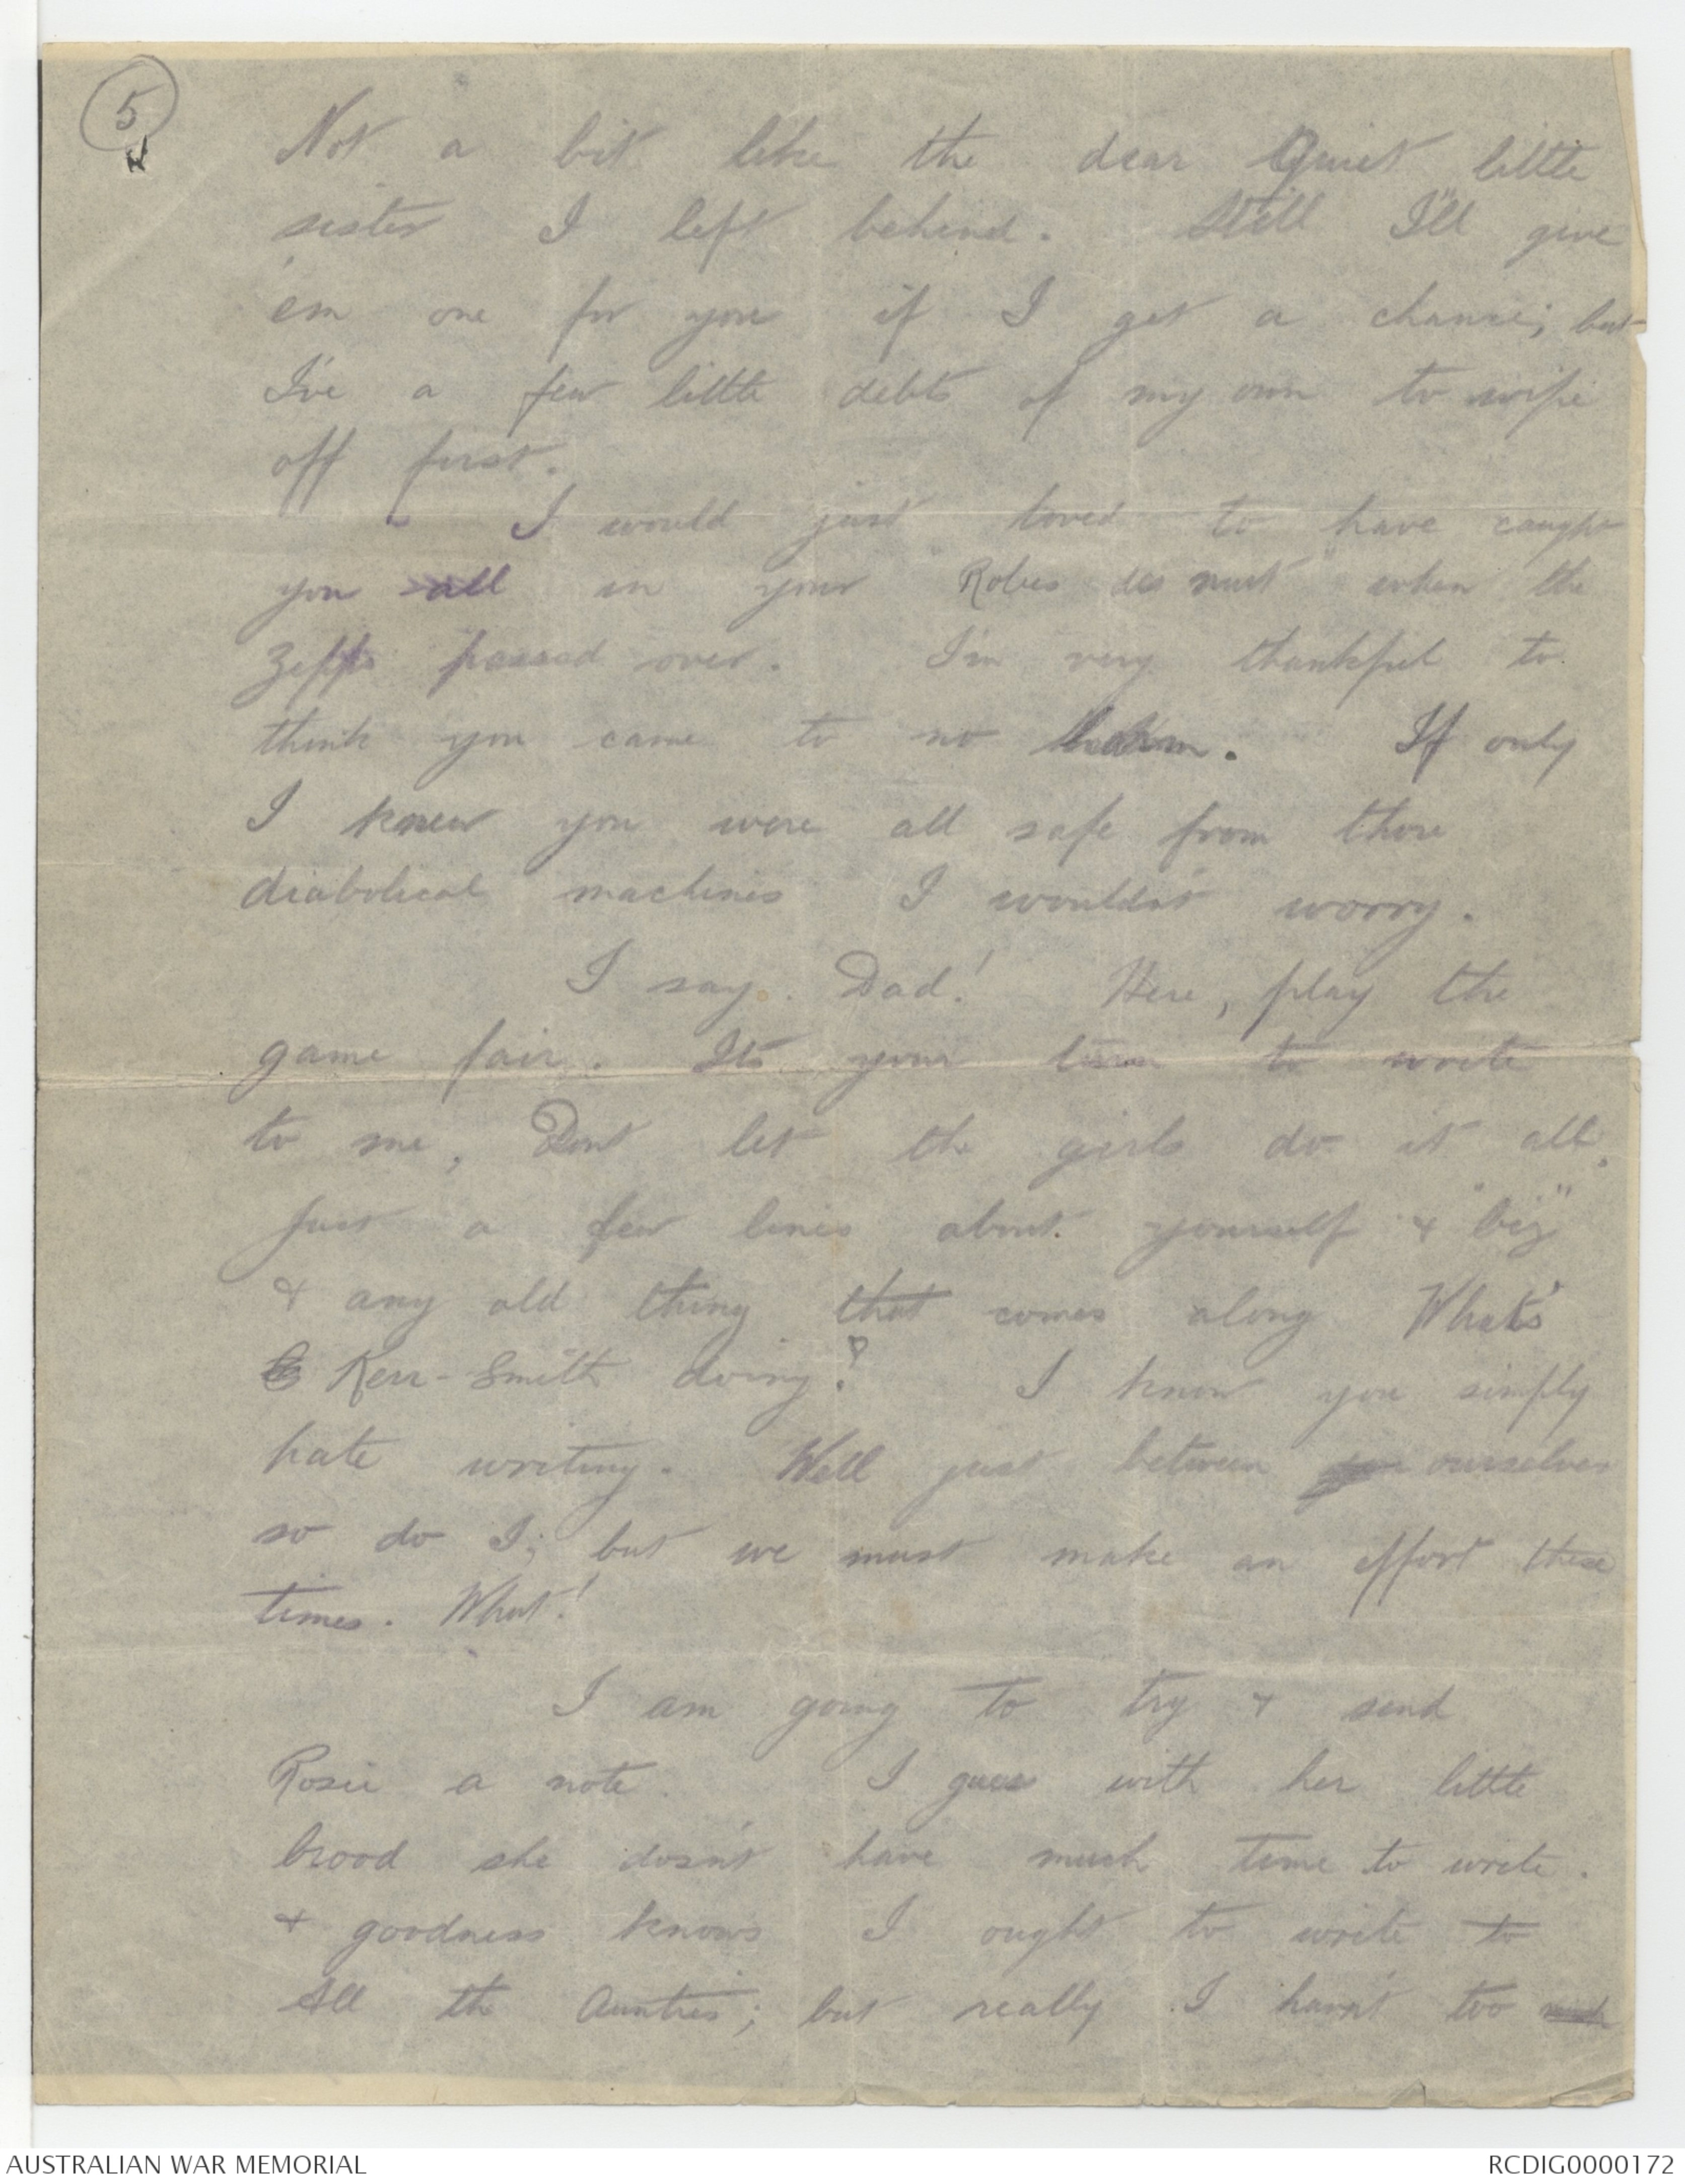 5
Not a bit like the dear Quiet little
sister I left behind. Still I'll give
'em one for you if I get a chance; but
I've a few little debts of my own to wipe
off first.
I would just loved to have caught
you all in your "Robes des nuit" when the
Zepps passed over. I'm very thankful to
think you came to no harm. If only
I knew you were all safe from those
diabolical machines I wouldn't worry.
I say. Dad! Here, play the
game fair. Its your turn to write
to me, Dont let the girls do it all.
Just a few lines about yourself & "biz"
& any old thing that comes along What's
Kerr-Smith doing? I know you simply
hate writing. Well just between ourselves
so do I; but we must make an effort these
times. What!
I am going to try & send
Rosie a note. I guess with her little
brood she doesn't have much time to write.
& goodness knows I ought to write to
All the Aunties; but really I havn't too much
AUSTRALIAN WAR MEMORIAL
RCDIG0000172